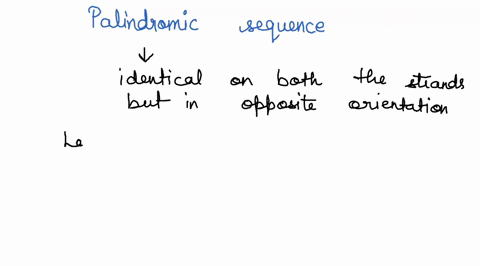 Palindromic sequence
↓
identical on both the strands
but in opposite orientation
Le